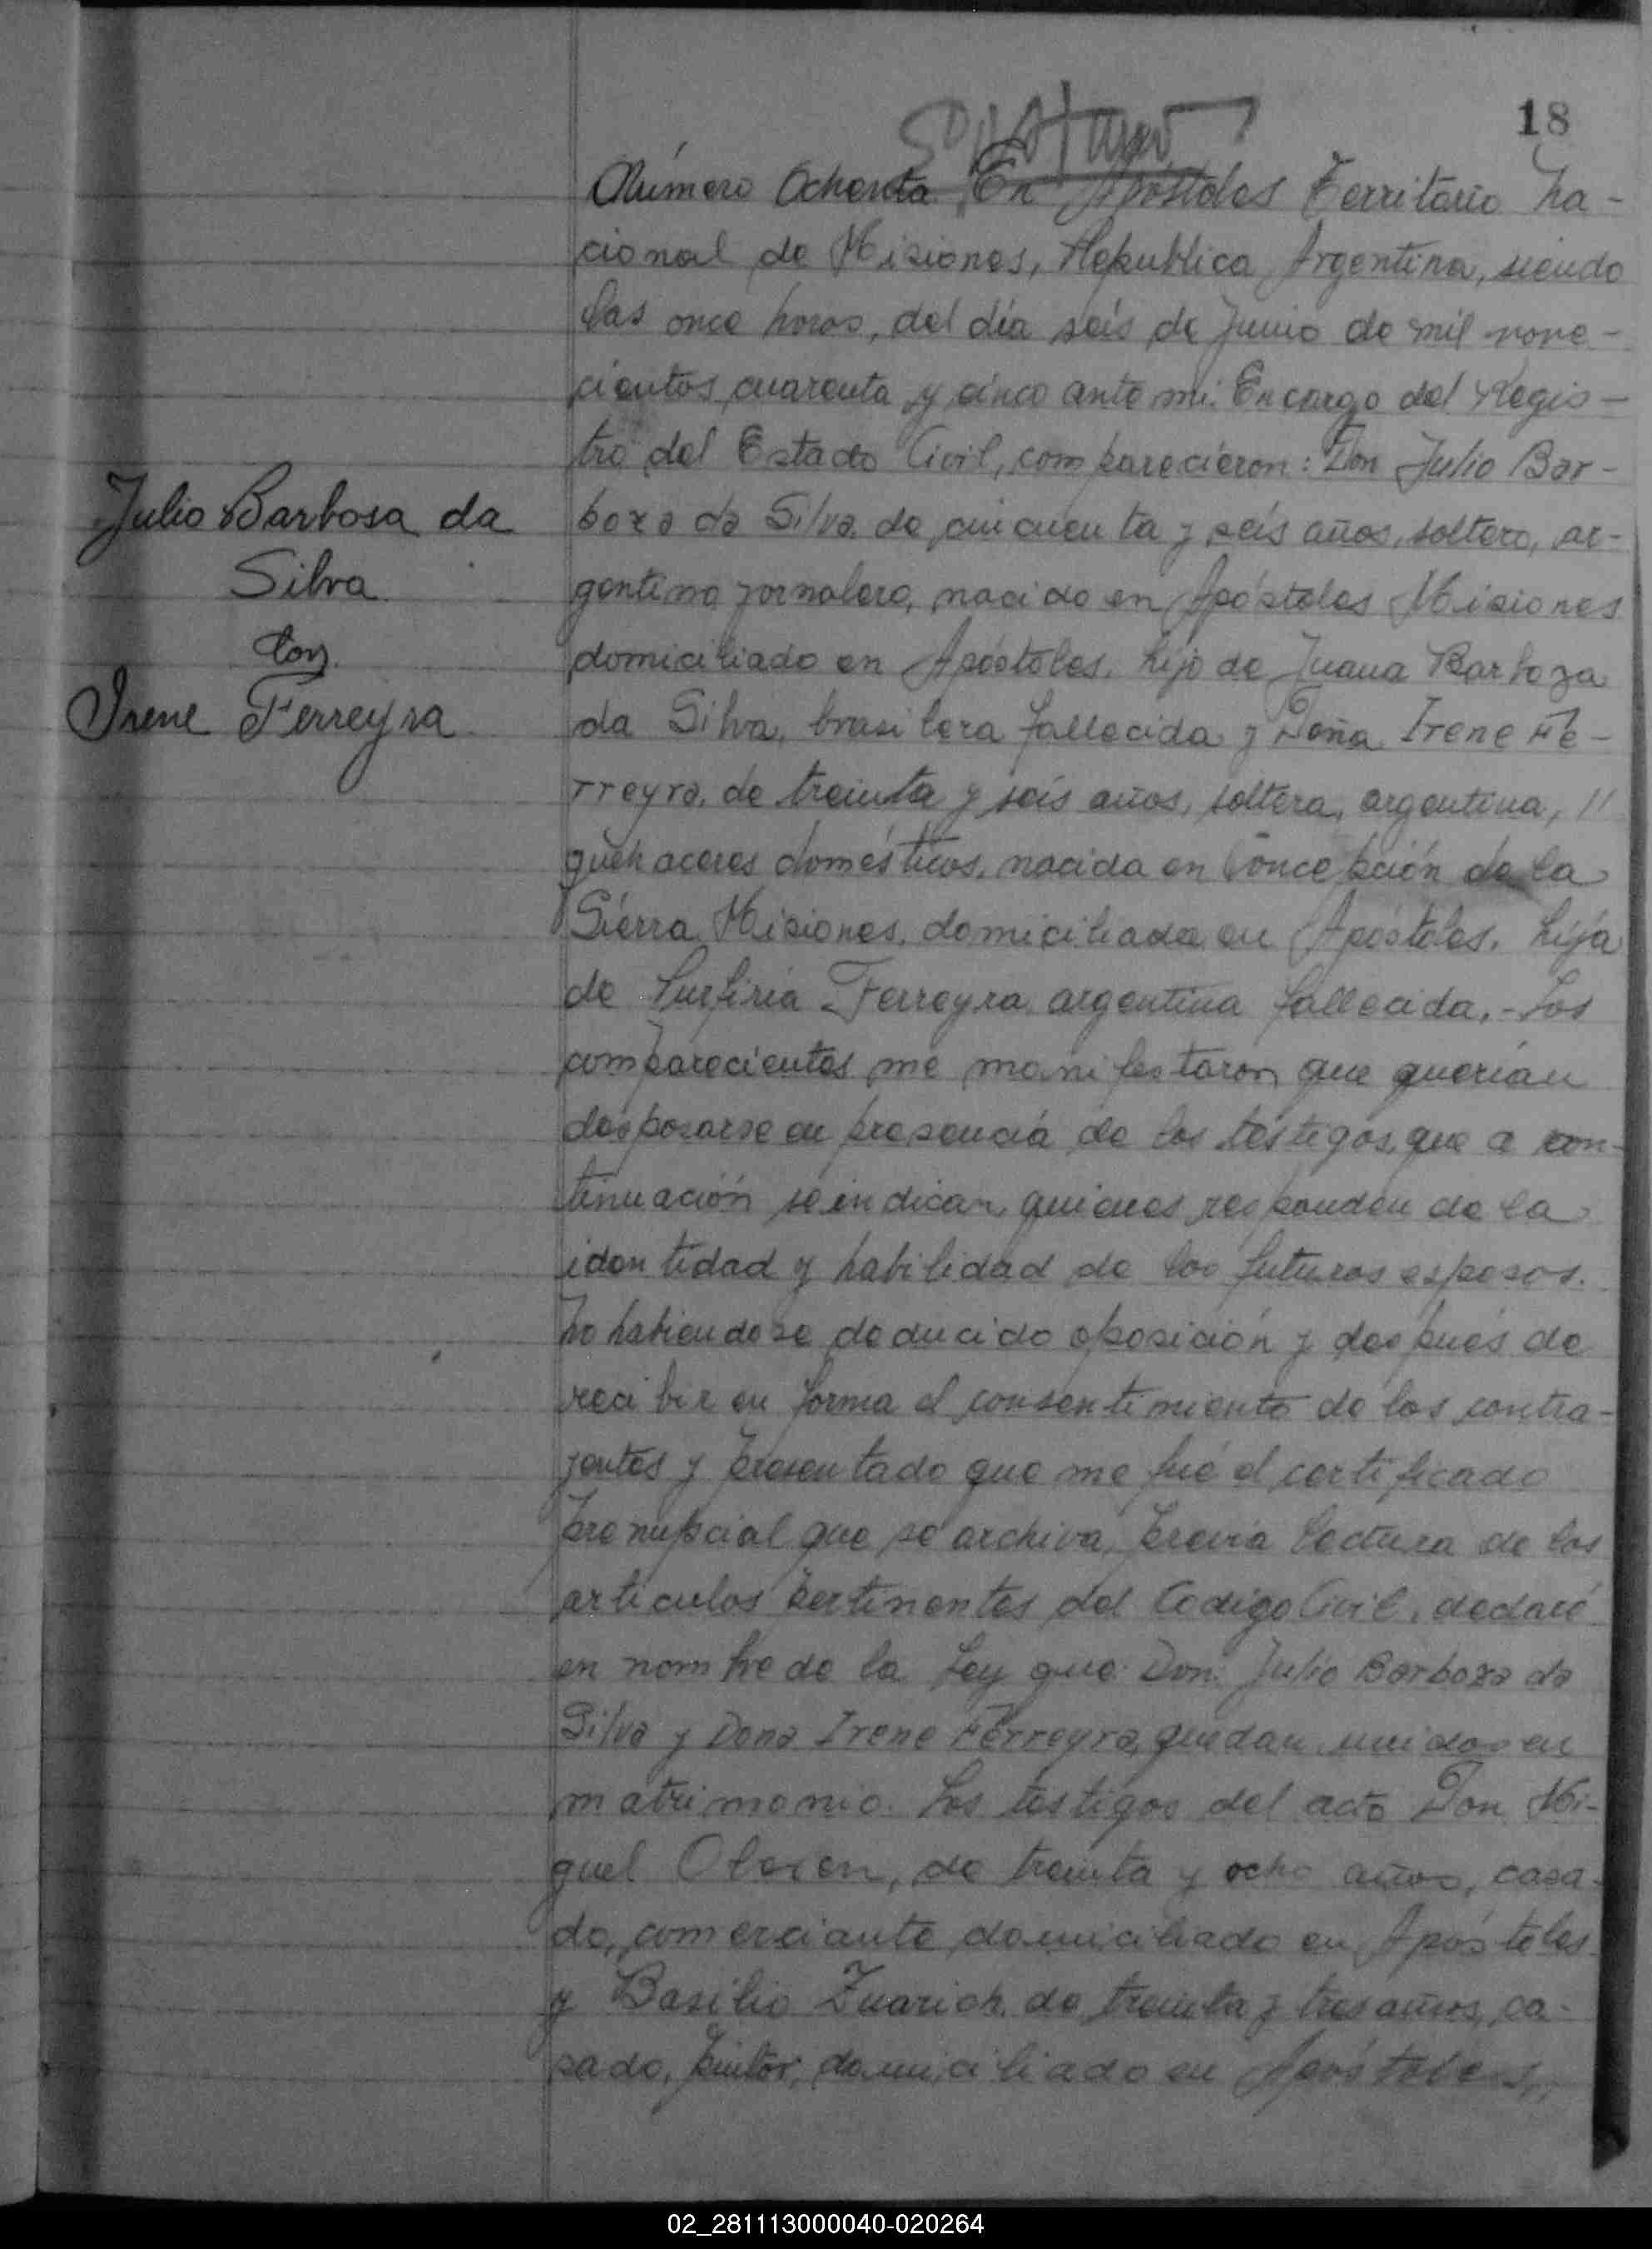 18
Número Ochenta. En Apóstoles Territorio Na-
cional de Misiones, Republica Argentina, siendo
las once horas, del día seis de Junio de mil nove-
cientos cuarenta y cinco ante mi: Encargo del Regis-
tro del Estado Civil, comparecieron: Don Julio Bar-
boza da Silva, de cincuenta y seis años, soltero, ar-
gentino jornalero, nacido en Apóstoles Misiones
domiciliado en Apóstoles, hijo de Juana Barboza
da Silva, brasilera fallecida y Doña Irene Fe-
rreyra, de treinta y seis años, soltera, argentina, //
quehaceres domésticos, nacida en Concepción de la
Sierra Misiones, domiciliada en Apóstoles, hija
de Ferreyra argentina fallecida.- Los
comparecientes me manifestaron que querían
desposarse en presencia de los testigos, que a con-
tinuación se indican, quienes responden de la
identidad y habilidad de los futuros esposos.
No habiendose deducido oposición y después de
recibir en forma el consentimiento de los contra-
yentes y presentado que me fué el certificado
prenupcial que se archiva, previa lectura de los
articulos pertinentes del Codigo Civil, declaré
en nombre de la Ley que: Don: Julio Barboza da
Silva y Dona Irene Ferreyra, quedan unidos en
matrimonio. Los testigos del acto Don Mi-
guel Olexen, de treinta y ocho años, casa-
do, comerciante domiciliado en Apóstoles
y Basilio Zuarich, de treinta y tres años, ca-
sado, pintor, domiciliado en Apóstoles,
Julio Barbosa da
Silva
Con
Irene Ferreyra
02_281113000040-020264